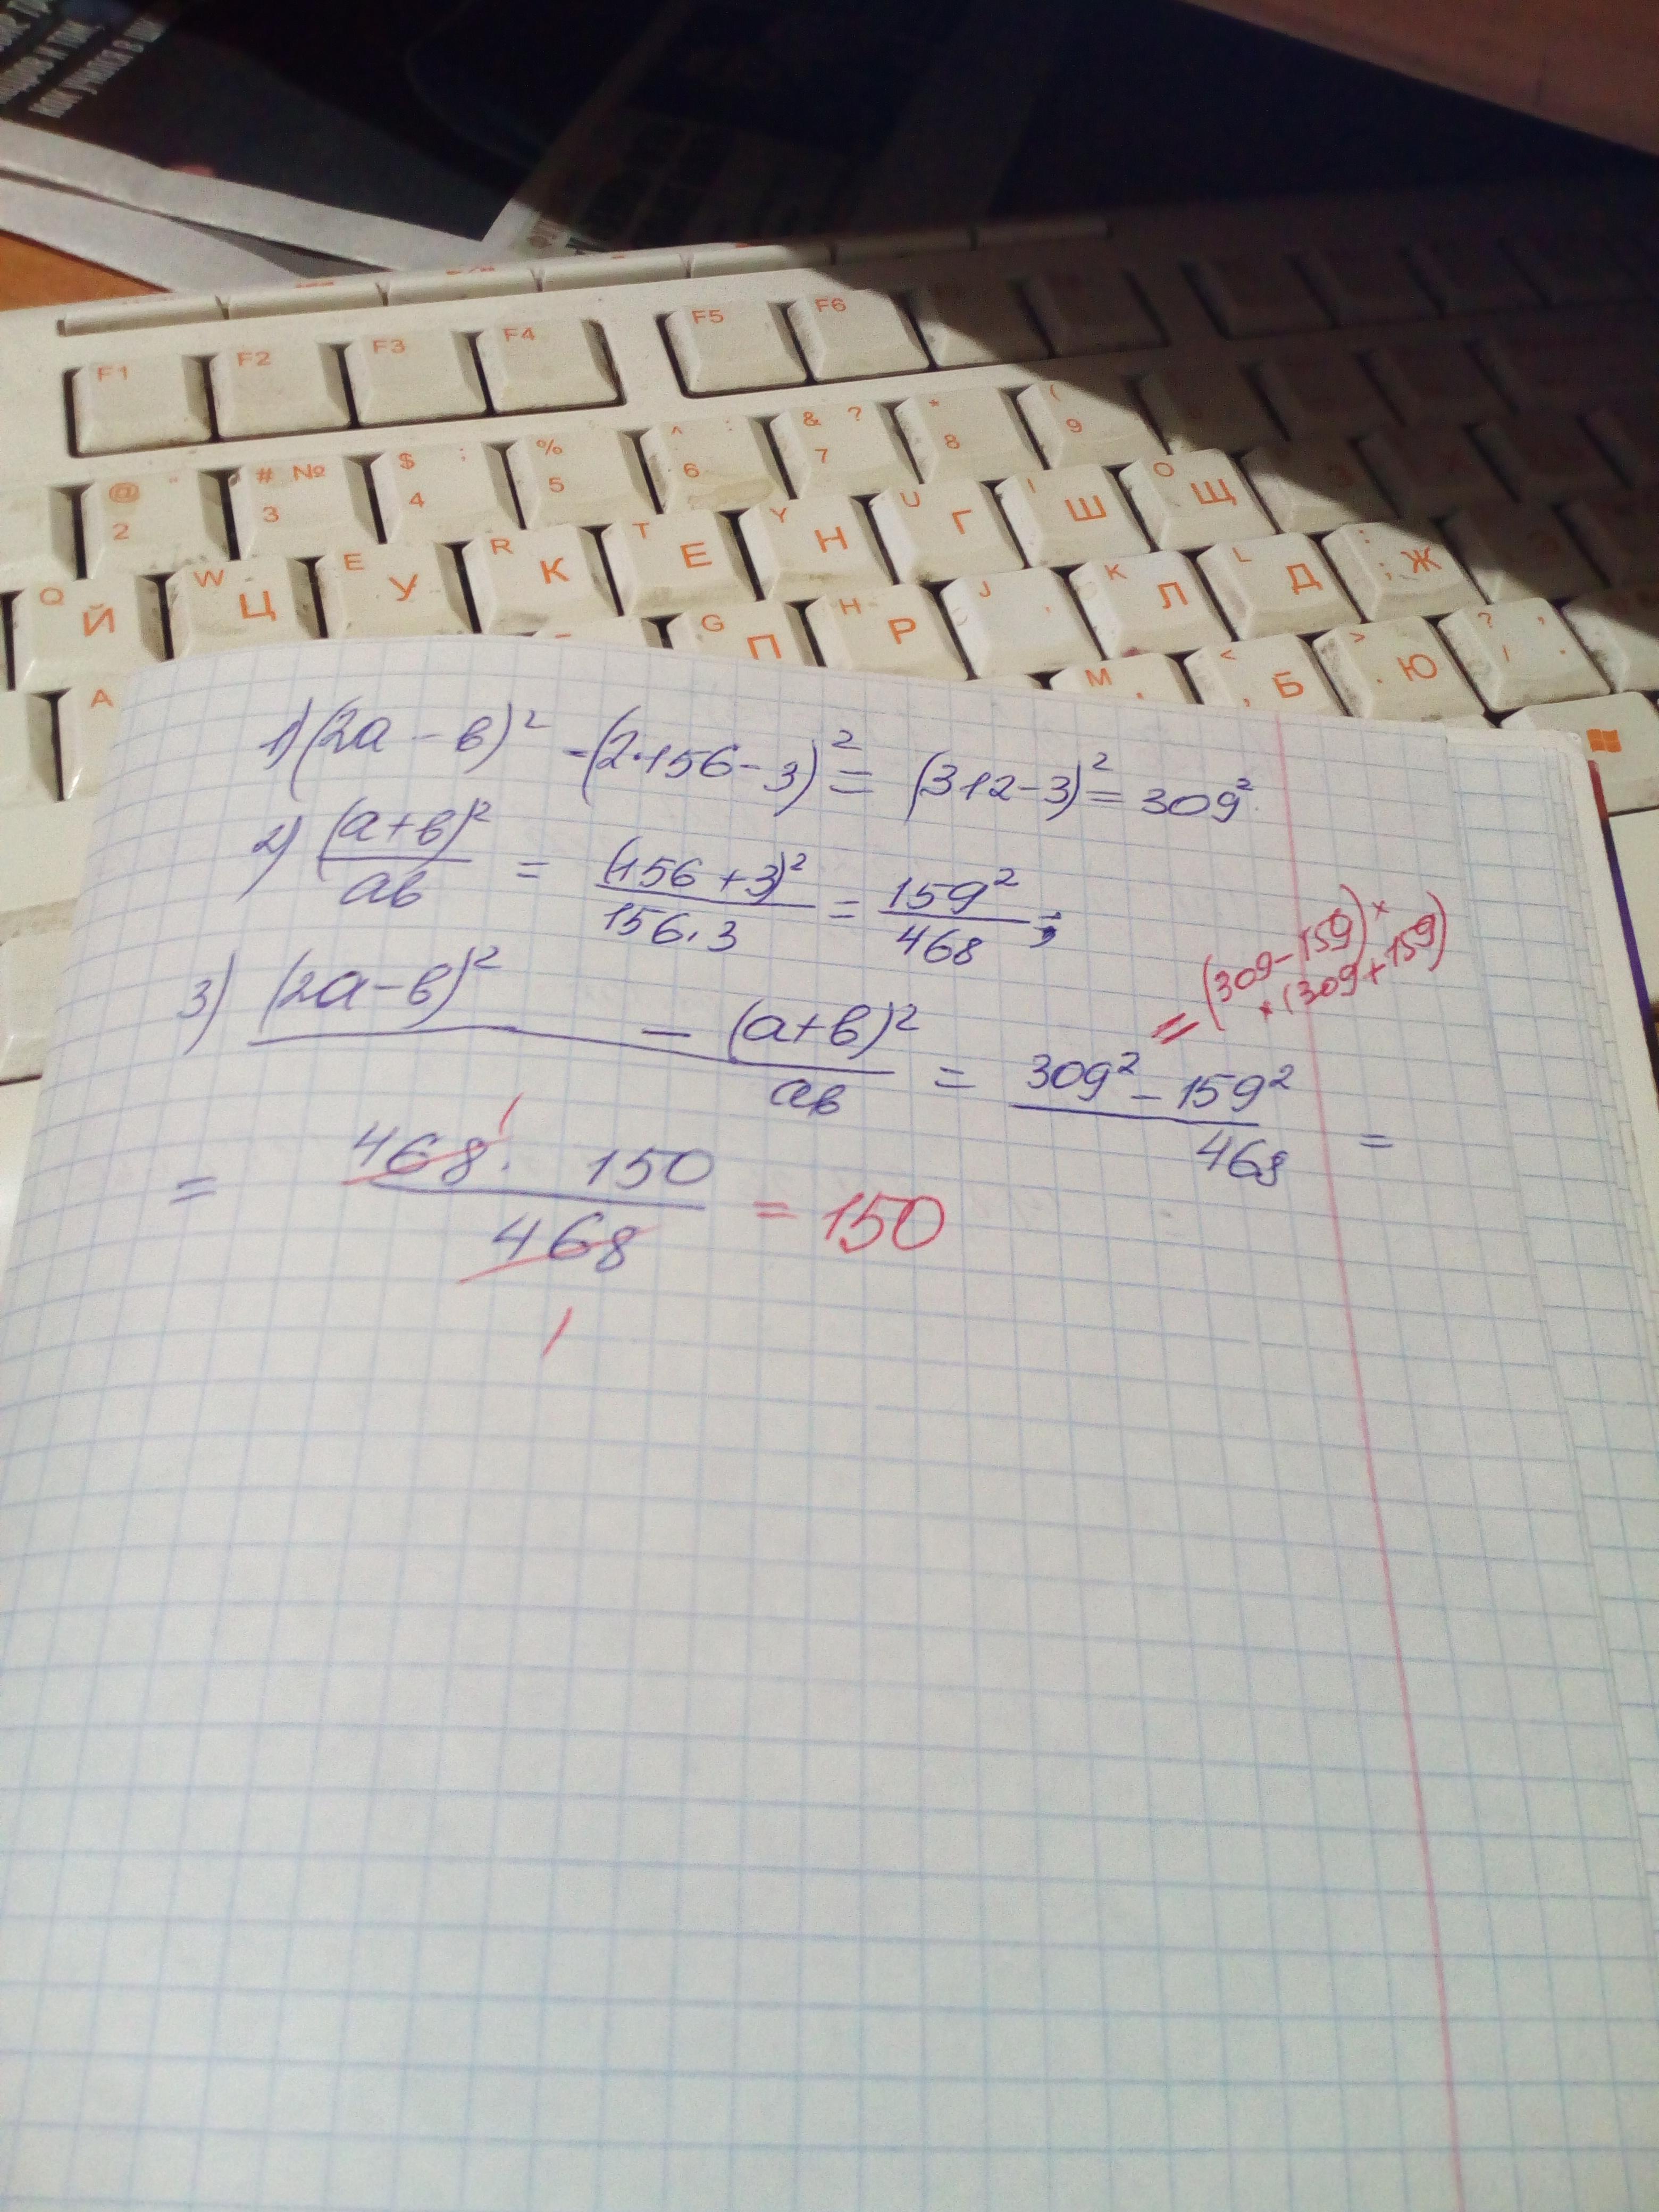 F1 F2 F3 F4 F5 F6
@ " 2 # № 3 $ ; 4 % 5 ^ : 6 & ? 7 * 8 ( 9
Q Й W Ц E У R К T Е Y Н U Г I Ш O Щ
A G П H Р J K Л L Д : ; Ж
M < , Б > . Ю ? / , .
1) (2a - в)² - (2·156 - 3)² = (312 - 3)² = 309².
2) (a+в)²/aв = (156 + 3)²/156·3 = 159²/468 ;
= (309 - 159) ×
× (309 + 159)
3) (2a - в)² - (a+в)²/aв = 309² - 159²/468 =
= 468 · 150/468 = 150
1
1